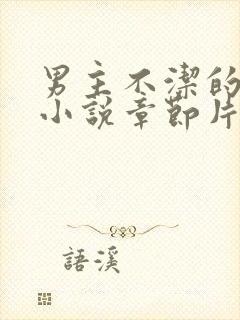 男主不潔的
小說章節片
語溪